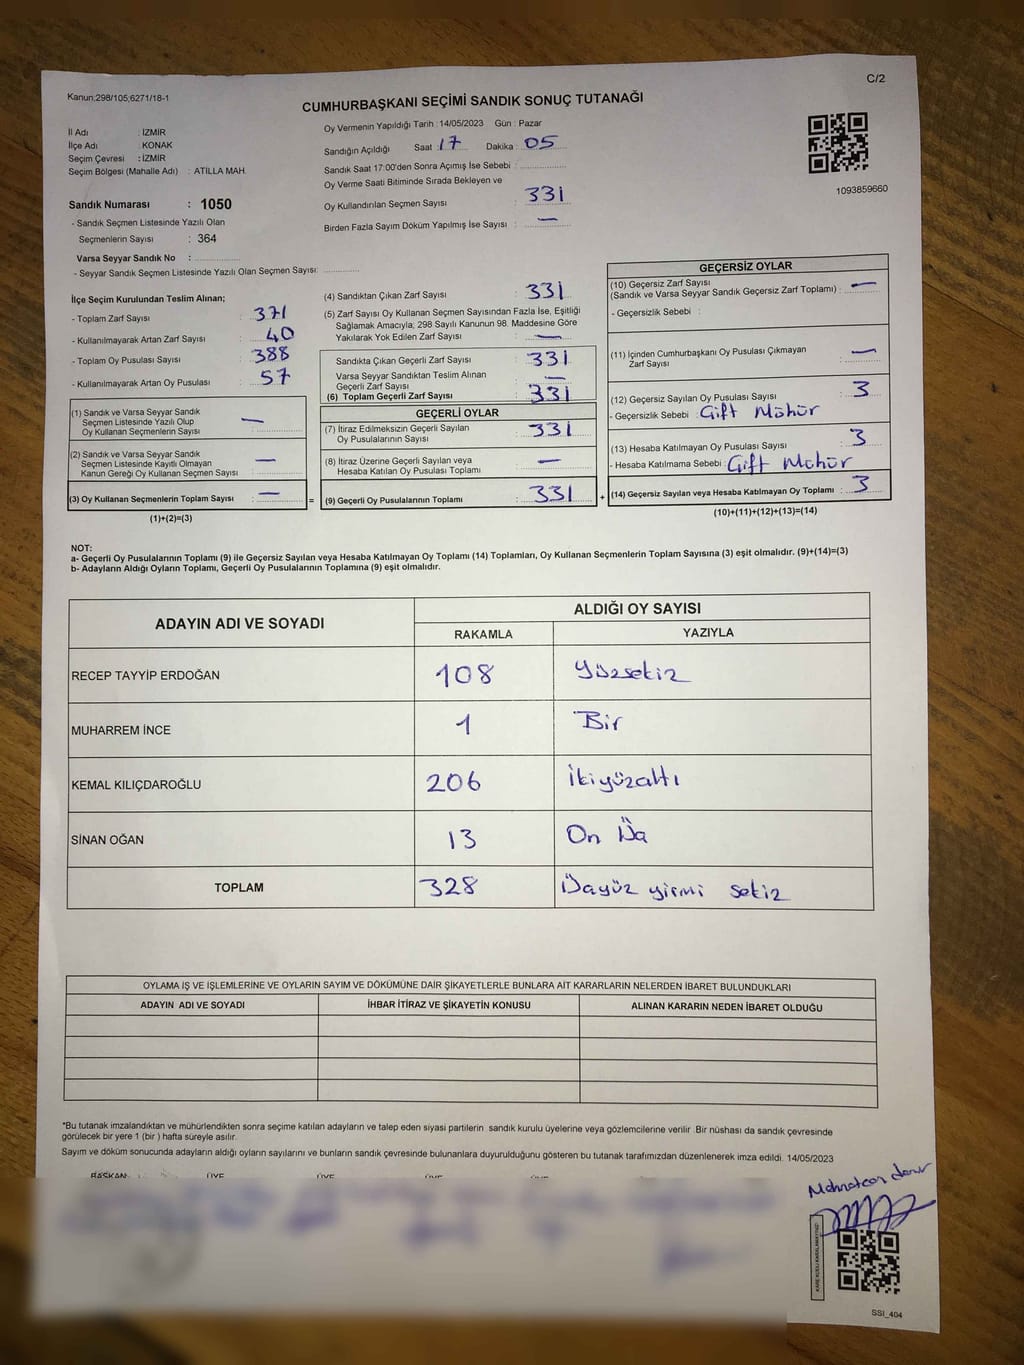 C/2
Kanun:298/105;6271/18-1
CUMHURBAŞKANI SEÇİMİ SANDIK SONUÇ TUTANAĞI
İl Adı : İZMİR
İlçe Adı : KONAK
Seçim Çevresi : İZMİR
Seçim Bölgesi (Mahalle Adı) : ATİLLA MAH.
Sandık Numarası : 1050
- Sandık Seçmen Listesinde Yazılı Olan
Seçmenlerin Sayısı : 364
Varsa Seyyar Sandık No :
- Seyyar Sandık Seçmen Listesinde Yazılı Olan Seçmen Sayısı:
Oy Vermenin Yapıldığı Tarih : 14/05/2023 Gün : Pazar
Sandığın Açıldığı Saat : 17 Dakika : 05
Sandık Saat 17:00'den Sonra Açımış İse Sebebi :
Oy Verme Saati Bitiminde Sırada Bekleyen ve
Oy Kullandırılan Seçmen Sayısı : 331
Birden Fazla Sayım Döküm Yapılmış İse Sayısı : —
1093859660
İlçe Seçim Kurulundan Teslim Alınan;
- Toplam Zarf Sayısı : 371
- Kullanılmayarak Artan Zarf Sayısı : 40
- Toplam Oy Pusulası Sayısı : 388
- Kullanılmayarak Artan Oy Pusulası : 57
(1) Sandık ve Varsa Seyyar Sandık
Seçmen Listesinde Yazılı Olup
Oy Kullanan Seçmenlerin Sayısı : —
(2) Sandık ve Varsa Seyyar Sandık
Seçmen Listesinde Kayıtlı Olmayan
Kanun Gereği Oy Kullanan Seçmen Sayısı : —
(3) Oy Kullanan Seçmenlerin Toplam Sayısı : — =
(1)+(2)=(3)
(4) Sandıktan Çıkan Zarf Sayısı : 331
(5) Zarf Sayısı Oy Kullanan Seçmen Sayısından Fazla İse, Eşitliği
Sağlamak Amacıyla; 298 Sayılı Kanunun 98. Maddesine Göre
Yakılarak Yok Edilen Zarf Sayısı : —
Sandıkta Çıkan Geçerli Zarf Sayısı : 331
Varsa Seyyar Sandıktan Teslim Alınan
Geçerli Zarf Sayısı : —
(6) Toplam Geçerli Zarf Sayısı : 331
GEÇERLİ OYLAR
(7) İtiraz Edilmeksizin Geçerli Sayılan
Oy Pusulalarının Sayısı : 331
(8) İtiraz Üzerine Geçerli Sayılan veya
Hesaba Katılan Oy Pusulası Toplamı : —
(9) Geçerli Oy Pusulalarının Toplamı : 331 +
GEÇERSİZ OYLAR
(10) Geçersiz Zarf Sayısı
(Sandık ve Varsa Seyyar Sandık Geçersiz Zarf Toplamı) : —
- Geçersizlik Sebebi :
(11) İçinden Cumhurbaşkanı Oy Pusulası Çıkmayan
Zarf Sayısı : —
(12) Geçersiz Sayılan Oy Pusulası Sayısı : 3
- Geçersizlik Sebebi : Çift Mühür
(13) Hesaba Katılmayan Oy Pusulası Sayısı : 3
- Hesaba Katılmama Sebebi : Çift Mühür
(14) Geçersiz Sayılan veya Hesaba Katılmayan Oy Toplamı : 3
(10)+(11)+(12)+(13)=(14)
NOT:
a- Geçerli Oy Pusulalarının Toplamı (9) ile Geçersiz Sayılan veya Hesaba Katılmayan Oy Toplamı (14) Toplamları, Oy Kullanan Seçmenlerin Toplam Sayısına (3) eşit olmalıdır. (9)+(14)=(3)
b- Adayların Aldığı Oyların Toplamı, Geçerli Oy Pusulalarının Toplamına (9) eşit olmalıdır.
ADAYIN ADI VE SOYADI
ALDIĞI OY SAYISI
RAKAMLA YAZIYLA
RECEP TAYYİP ERDOĞAN 108 Yüzsekiz
MUHARREM İNCE 1 Bir
KEMAL KILIÇDAROĞLU 206 İkiyüzaltı
SİNAN OĞAN 13 On Üç
TOPLAM 328 Üçyüz yirmi sekiz
OYLAMA İŞ VE İŞLEMLERİNE VE OYLARIN SAYIM VE DÖKÜMÜNE DAİR ŞİKAYETLERLE BUNLARA AİT KARARLARIN NELERDEN İBARET BULUNDUKLARI
ADAYIN ADI VE SOYADI İHBAR İTİRAZ VE ŞİKAYETİN KONUSU ALINAN KARARIN NEDEN İBARET OLDUĞU
*Bu tutanak imzalandıktan ve mühürlendikten sonra seçime katılan adayların ve talep eden siyasi partilerin sandık kurulu üyelerine veya gözlemcilerine verilir .Bir nüshası da sandık çevresinde
görülecek bir yere 1 (bir ) hafta süreyle asılır.
Sayım ve döküm sonucunda adayların aldığı oyların sayılarını ve bunların sandık çevresinde bulunanlara duyurulduğunu gösteren bu tutanak tarafımızdan düzenlenerek imza edildi. 14/05/2023
BAŞKAN ÜYE ÜYE ÜYE ÜYE
SSI_404